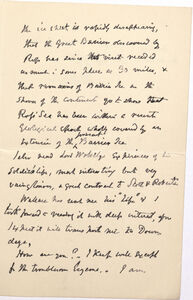 the ice sheet is rapidly disappearing,
that the Great Barrier discovered by
Ross has since that visit receded
as much in some places as 30 miles, &
that remains of Barrier Ice on the
shores of the continent go to show that
Ross Sea has been within a recent
Geological epoch wholly covered by an
Extension of the present Barrier Ice.
I also read Lord Wolseley's Experiences of his
Soldiership, most interesting but very
vainglorious, a great contrast to Roberts
Wallace has sent me his "Life" & I
look forward a reading it with deep interest upon
days.
How are you? I keep well except
for the troublesome Eczema. I am